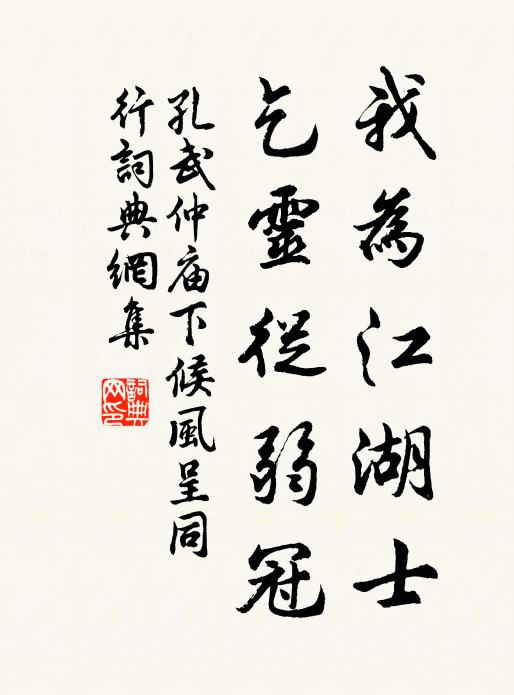 我為江湖士
乞靈從弱冠
孔武仲庙下候風呈同
行詞典網集
詞典
网印